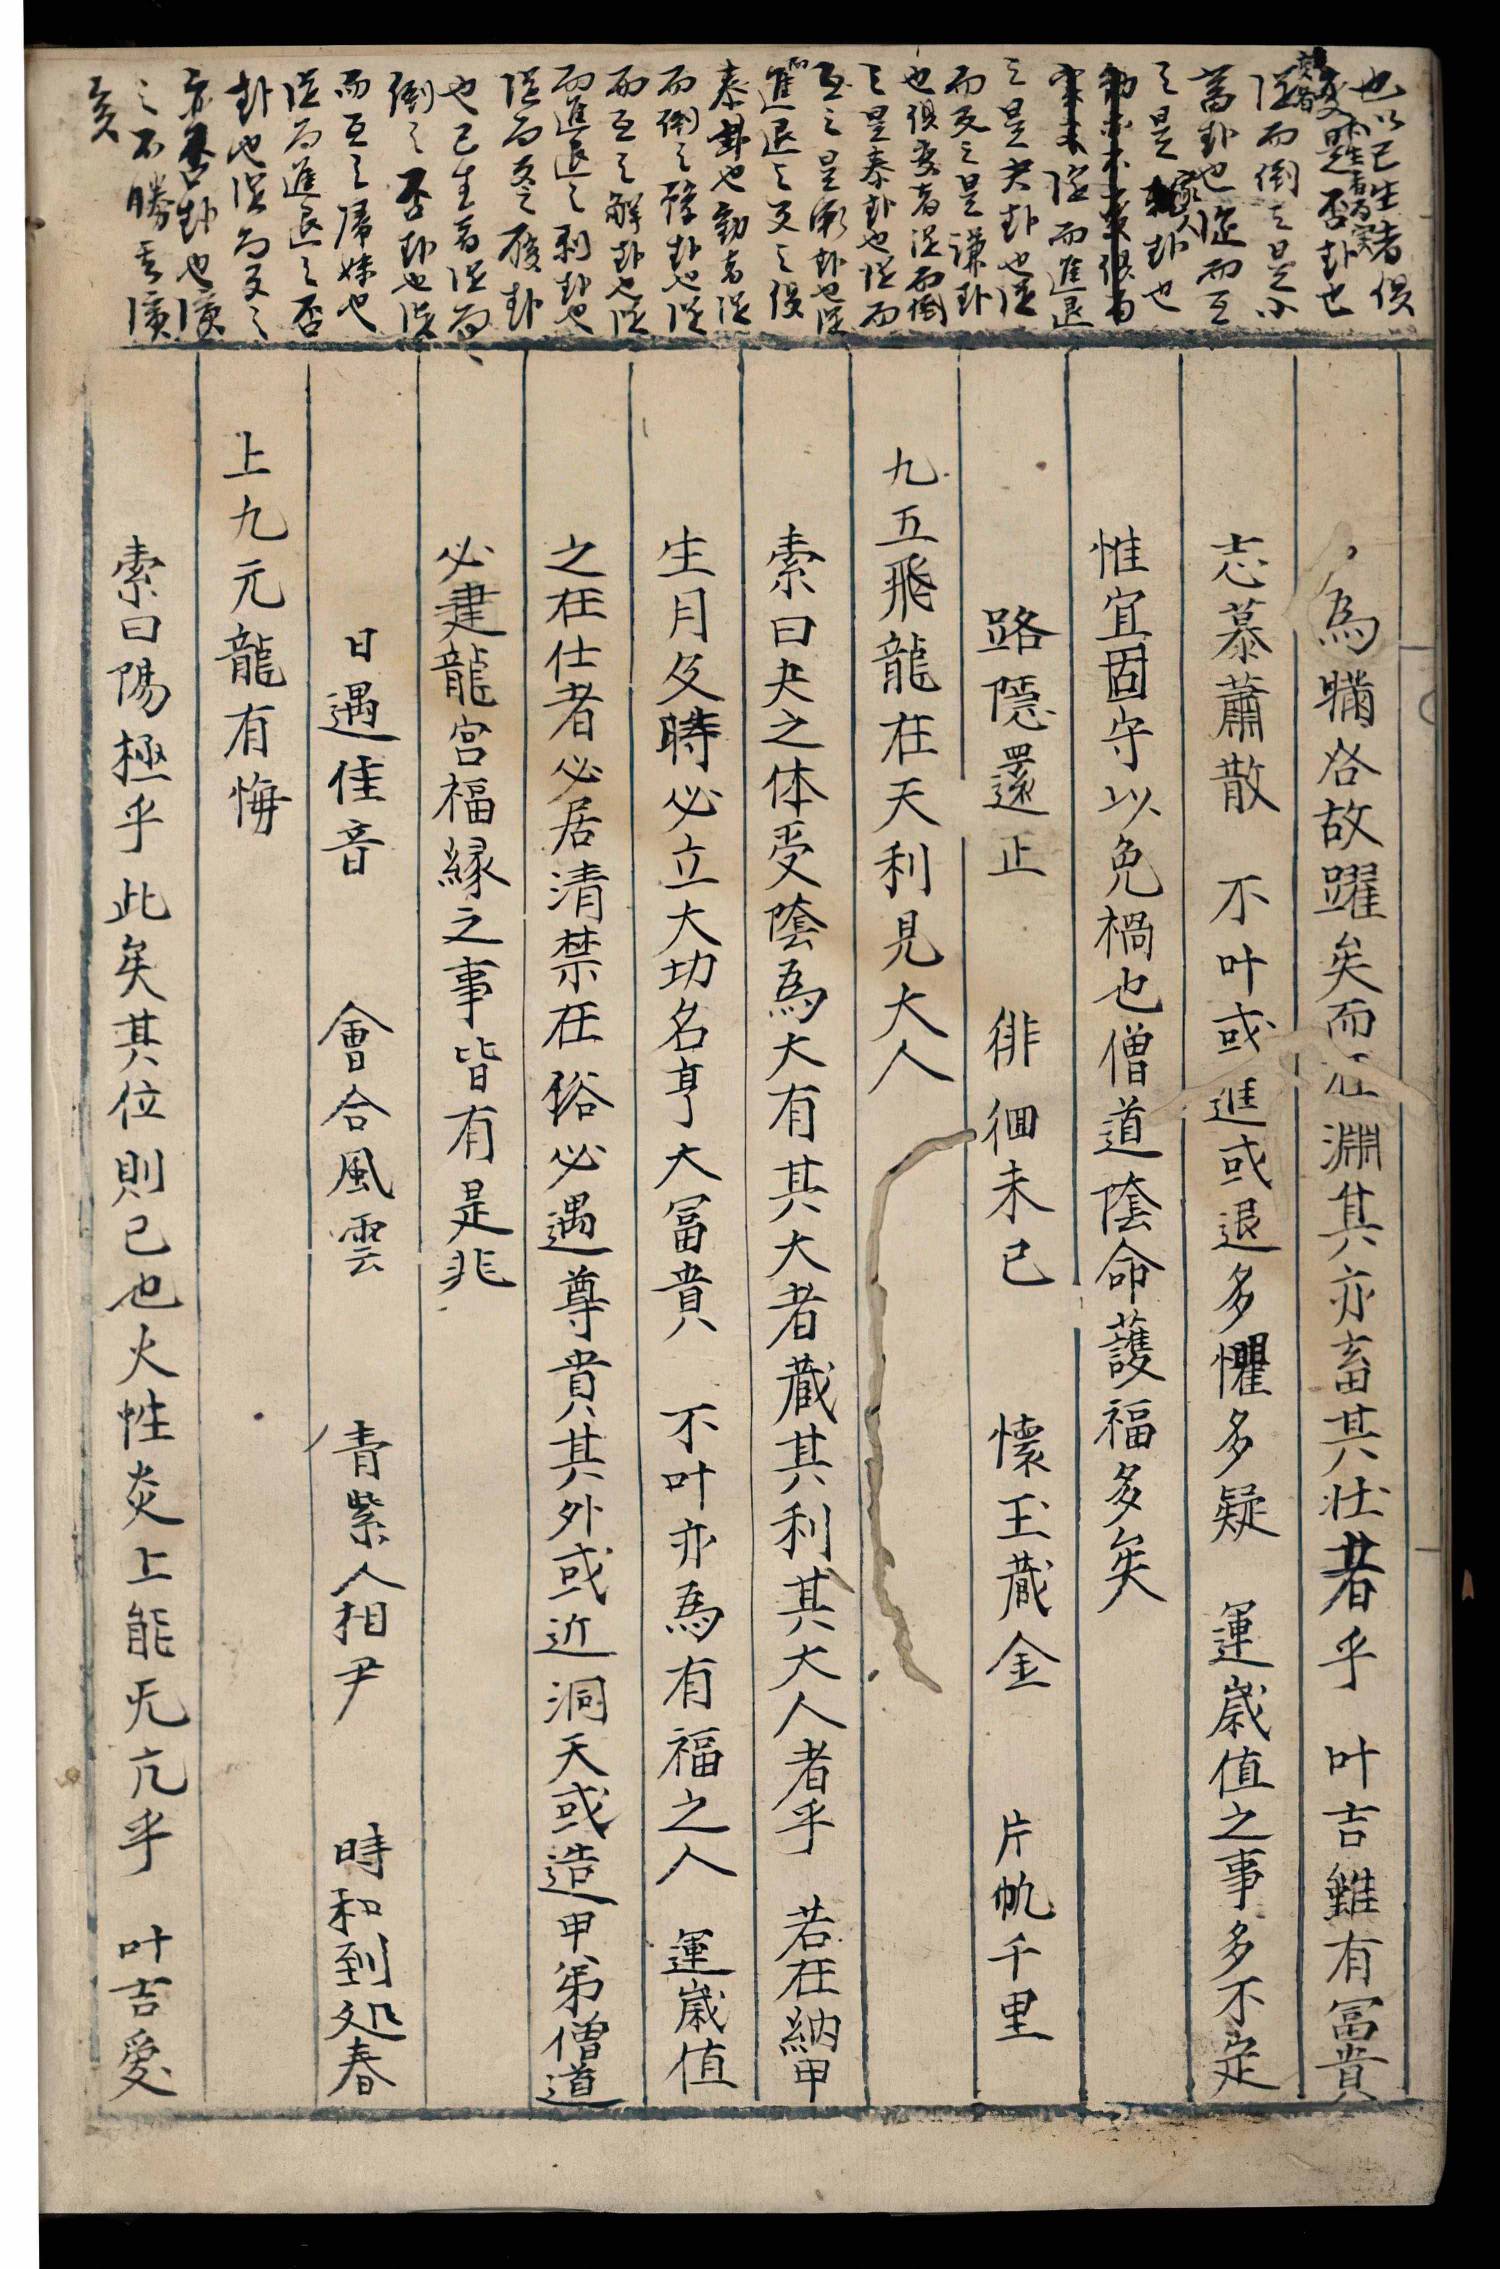 也以已生者俱
變是否卦也
從而倒之是小
畜卦也從而互
之是家人卦也
從而進退
之是夬卦也從
而反之是謙卦
也俱變者從而倒
之是泰卦也從而
互之是漸卦也從
而進退之反之俱
泰卦也動者從
而倒之豫卦也從
而互之解卦也從
而進退之剥卦也
從而反之復卦
也已生者從而
倒之否卦也從
而互之歸妹也
從而進退之否
卦也從而反之
亦否卦也演
之不勝其演
矣
為瞞咎故躍矣而在淵其亦畜其壮者乎 叶吉雖有冨貴
志慕蕭散 不叶或進或退多懼多疑 運歲值之事多不定
惟宜固守以免禍也僧道陰命護福多矣
路隱還正 徘徊未已 懷玉藏金 片帆千里
九五飛龍在天利見大人
索曰夬之体受陰為大有其大者藏其利其大人者乎 若在納甲
生月及時必立大功名亨大冨貴 不叶亦為有福之人 運歲值
之在仕者必居清禁在俗必遇尊貴其外或近洞天或造甲苐僧道
必建龍宮福緣之事皆有是兆
日遇佳音 會合風雲 青紫人相尹 時和到処春
上九亢龍有悔
索曰陽極乎此矣其位則已也火性炎上能旡亢乎 叶吉愛